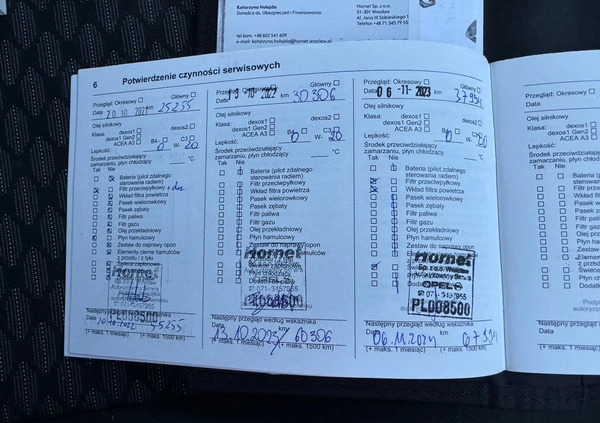 Katarzyna Hołajda
Doradca ds. Ubezpieczeń i Finansowania
tel.kom. +48 602 541 609
e-mail: katarzyna.holajda@hornet.wroclaw.pl
Hornet Sp. z o.o.
51-301 Wrocław
Al. Jana III Sobieskiego
Telefon +48 71 345 79 55
6 Potwierdzenie czynności serwisowych
Przegląd: Okresowy Główny
Data 20 10. 2021 km 25255
Olej silnikowy
Klasa: dexos1 dexos2
dexos1 Gen2 B4 C3
ACEA A3
Lepkość: 0 W- 20
Środek przeciwdziałający
zamarzaniu, płyn chłodzący °C
Tak Nie
Bateria (pilot zdalnego
sterowania radiem)
Filtr przeciwpyłkowy
Wkład filtra powietrza
Pasek wielorowkowy
Pasek zębaty
Filtr paliwa
Filtr gazu
Olej przekładniowy
Płyn hamulcowy
Zestaw do naprawy opon
Elementy cierne hamulców
z przodu / z tyłu
Świece zapłonowe
Hornet
PLD08500
Następny przegląd według wskaźnika
Data km
20.10.2022 55255
(+ maks. 1 miesiąc) (+ maks. 1500 km)
Przegląd: Okresowy Główny
Data 13-10-2022 km 30306
Olej silnikowy
Klasa: dexos1 dexos2
dexos1 Gen2 B4 C3
ACEA A3
Lepkość: 0 W- 20
Środek przeciwdziałający
zamarzaniu, płyn chłodzący °C
Tak Nie
Bateria (pilot zdalnego
sterowania radiem)
Filtr przeciwpyłkowy
Wkład filtra powietrza
Pasek wielorowkowy
Pasek zębaty
Filtr paliwa
Filtr gazu
Olej przekładniowy
Płyn hamulcowy
Zestaw do naprawy opon
Hornet
071-3457955
PLD08500
Następny przegląd według wskaźnika
Data km
13.10.2023 60306
(+ maks. 1 miesiąc) (+ maks. 1500 km)
Przegląd: Okresowy Główny
Data 06-11-2023 km
Olej silnikowy
Klasa: dexos1 dexos2
dexos1 Gen2 B4 C3
ACEA A3
Lepkość: 0 W- 20
Środek przeciwdziałający
zamarzaniu, płyn chłodzący °C
Tak Nie
Bateria (pilot zdalnego
sterowania radiem)
Filtr przeciwpyłkowy
Wkład filtra powietrza
Pasek wielorowkowy
Pasek zębaty
Filtr paliwa
Filtr gazu
Olej przekładniowy
Płyn hamulcowy
Zestaw do naprawy opon
Hornet
OPEL
PLD08500
Następny przegląd według wskaźnika
Data km
06.11.2024
(+ maks. 1 miesiąc) (+ maks. 1500 km)
Przegląd: Okresowy
Data
Olej silnikowy
Klasa: dexos1
dexos1 Gen2
ACEA A3
Lepkość:
Środek przeciwdziałający
zamarzaniu, płyn chłodzący
Tak Nie
Bateria
sterow
Filtr prz
Wkład
Pasek
Pasek
Filtr pa
Filtr g
Olej prz
Płyn h
Zestaw
Elemen
z przod
Świece
Płyn ch
Dodatk
Podp
autoryzo
Następny przegląd
Data
(+ maks. 1 miesiąc)